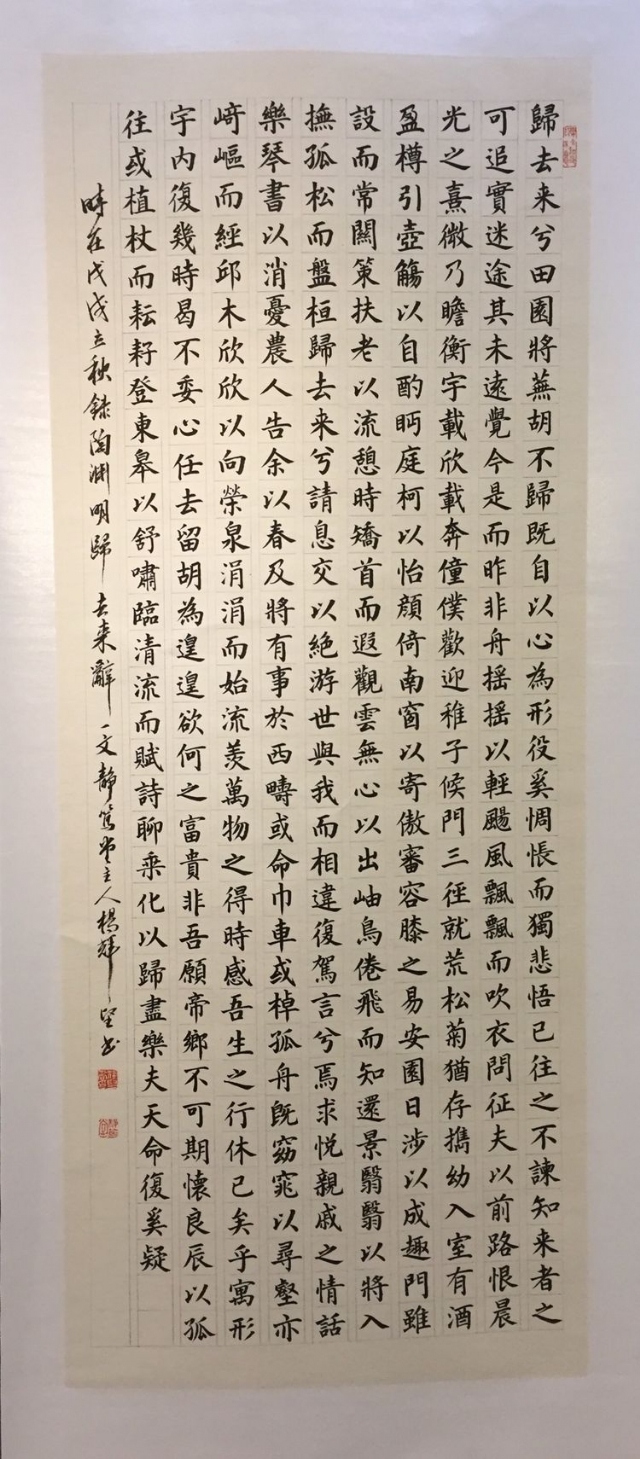 歸去来兮田園將蕪胡不歸既自以心為形役奚惆悵而獨悲悟已往之不諫知来者之
可追實迷途其未遠覺今是而昨非舟摇摇以輕颺風飄飄而吹衣問征夫以前路恨晨
光之熹微乃瞻衡宇載欣載奔僮僕歡迎稚子候門三徑就荒松菊猶存擕幼入室有酒
盈樽引壺觴以自酌眄庭柯以怡顔倚南窗以寄傲審容膝之易安園日涉以成趣門雖
設而常關策扶老以流憩時矯首而遐觀雲無心以出岫鳥倦飛而知還景翳翳以將入
撫孤松而盤桓歸去来兮請息交以絶游世與我而相違復駕言兮焉求悦親戚之情話
樂琴書以消憂農人告余以春及將有事於西疇或命巾車或棹孤舟既窈窕以尋壑亦
崎嶇而經邱木欣欣以向榮泉涓涓而始流羡萬物之得時感吾生之行休已矣乎寓形
宇内復幾時曷不委心任去留胡為遑遑欲何之富貴非吾願帝鄉不可期懷良辰以孤
往或植杖而耘耔登東皋以舒嘯臨清流而賦詩聊乘化以歸盡樂夫天命復奚疑
時在戊戌立秋錄陶淵明歸去来辭一文静篤堂主人楊輝堅書